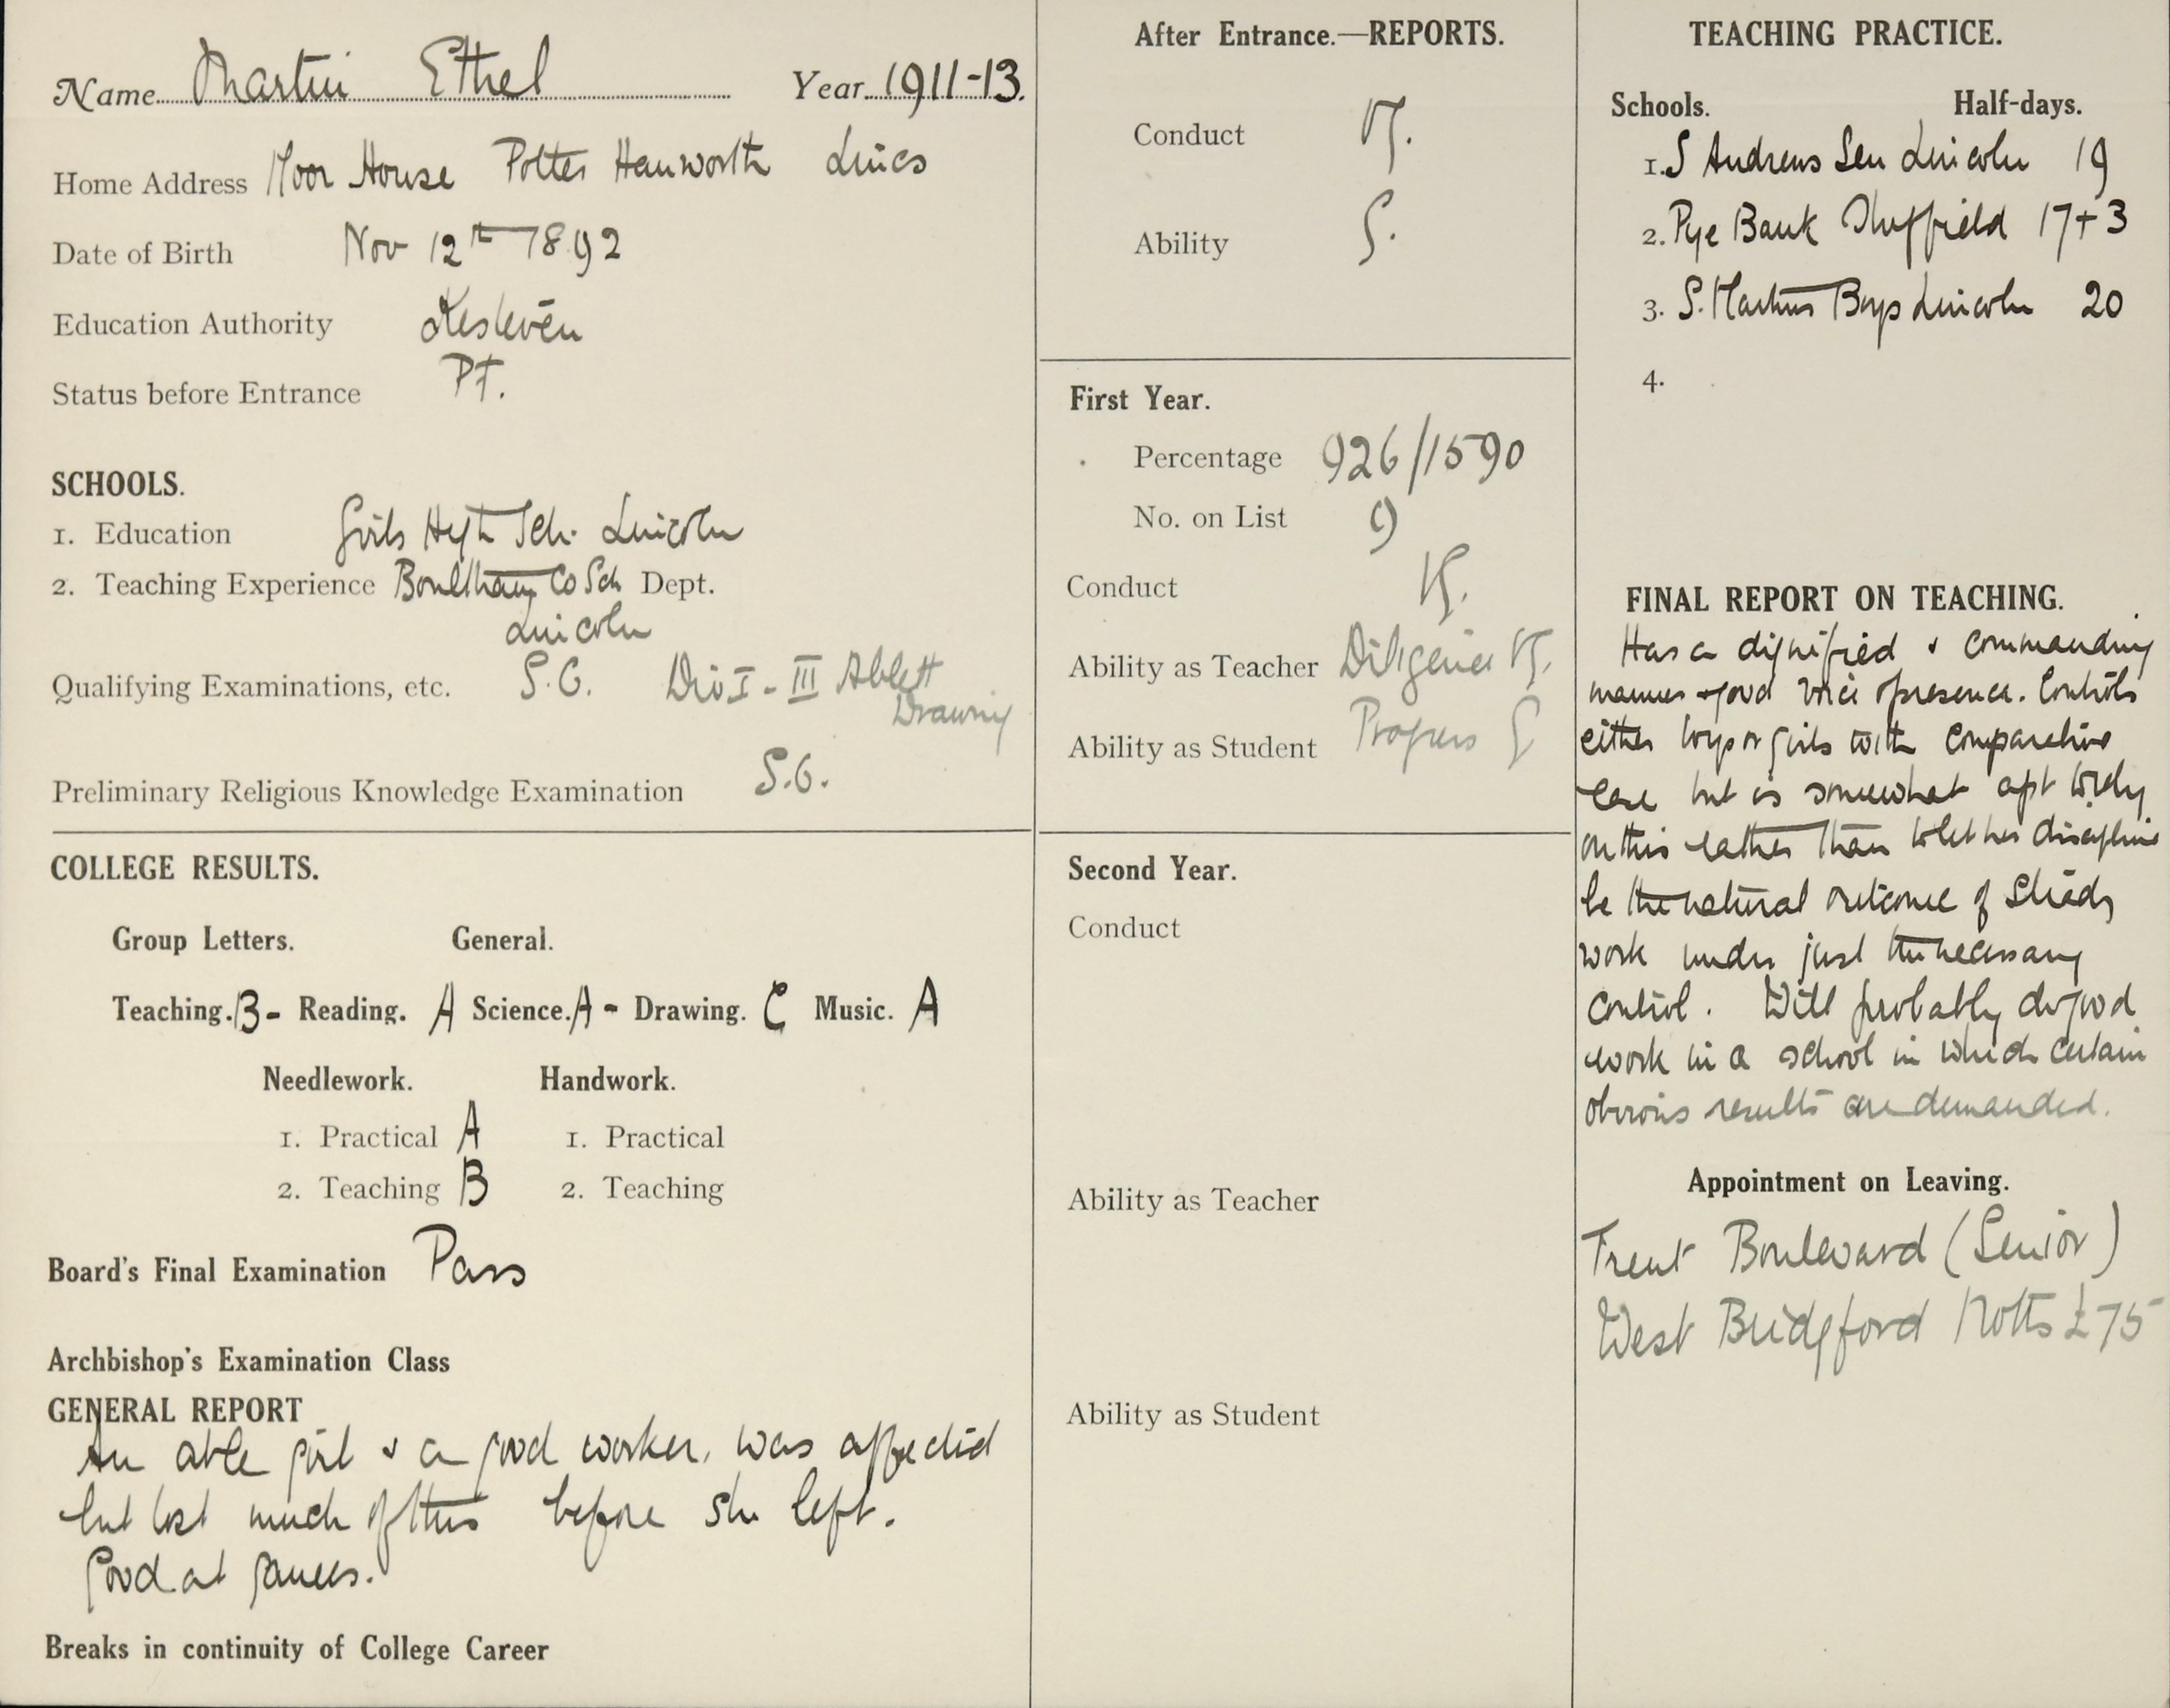 Name Martin Ethel Year 1911-13.
Home Address Moor House Potter Hanworth Lincs
Date of Birth Nov 12th 1892
Education Authority Kesteven
Status before Entrance P.T.
SCHOOLS.
1. Education Girls High Sch. Lincoln
2. Teaching Experience Boultham Co Sch Dept.
Lincoln
Qualifying Examinations, etc. S.C. Div I - III Ablett
Drawing
Preliminary Religious Knowledge Examination
COLLEGE RESULTS.
Group Letters. General.
Teaching. B- Reading. A Science. A- Drawing. C Music. A
Needlework. Handwork.
1. Practical A 1. Practical
2. Teaching B 2. Teaching
Board's Final Examination Pass
Archbishop's Examination Class
GENERAL REPORT
An able girl & a good worker, was affected
but lost much of this before she left.
Good at games.
Breaks in continuity of College Career
After Entrance.—REPORTS.
Conduct
Ability G.
First Year.
Percentage 926/1590
No. on List 9
Conduct
Ability as Teacher Diligence
Ability as Student Progress G
Second Year.
Conduct
Ability as Teacher
Ability as Student
TEACHING PRACTICE.
Schools. Half-days.
1. S Andrews Sen Lincoln 19
2. Pye Bank Sheffield 17+3
3. S. Martins Boys Lincoln 20
4.
FINAL REPORT ON TEACHING.
Has a dignified & commanding
manner & good voice & presence. Controls
either boys or girls with comparative
ease but is somewhat apt to rely
on this rather than to let her discipline
be the natural outcome of steady
work under just the necessary
control. Will probably do good
work in a school in which certain
obvious results are demanded.
Appointment on Leaving.
Trent Boulevard (Senior)
West Bridgford Notts £75